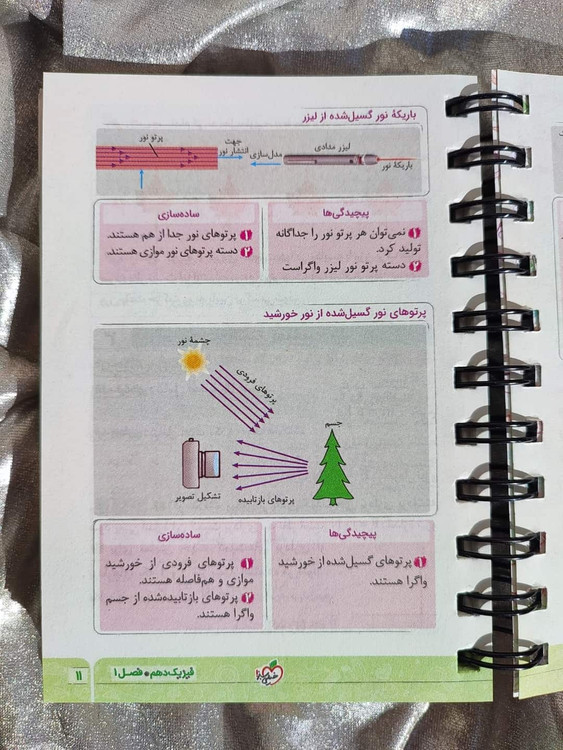 باریکهٔ نور گسیل‌شده از لیزر
پرتو نور
جهت
انتشار نور
مدل‌سازی
لیزر مدادی
باریکهٔ نور
پیچیدگی‌ها
۱ نمی‌توان هر پرتو نور را جداگانه
تولید کرد.
۲ دسته پرتو نور لیزر واگراست
ساده‌سازی
۱ پرتوهای نور جدا از هم هستند.
۲ دسته پرتوهای نور موازی هستند.
پرتوهای نور گسیل‌شده از نور خورشید
چشمهٔ نور
پرتوهای فرودی
جسم
تشکیل تصویر
پرتوهای بازتابیده
پیچیدگی‌ها
۱ پرتوهای گسیل‌شده از خورشید
واگرا هستند.
ساده‌سازی
۱ پرتوهای فرودی از خورشید
موازی و هم‌فاصله هستند.
۲ پرتوهای بازتابیده‌شده از جسم
واگرا هستند.
فیزیک دهم • فصل ۱
۱۱